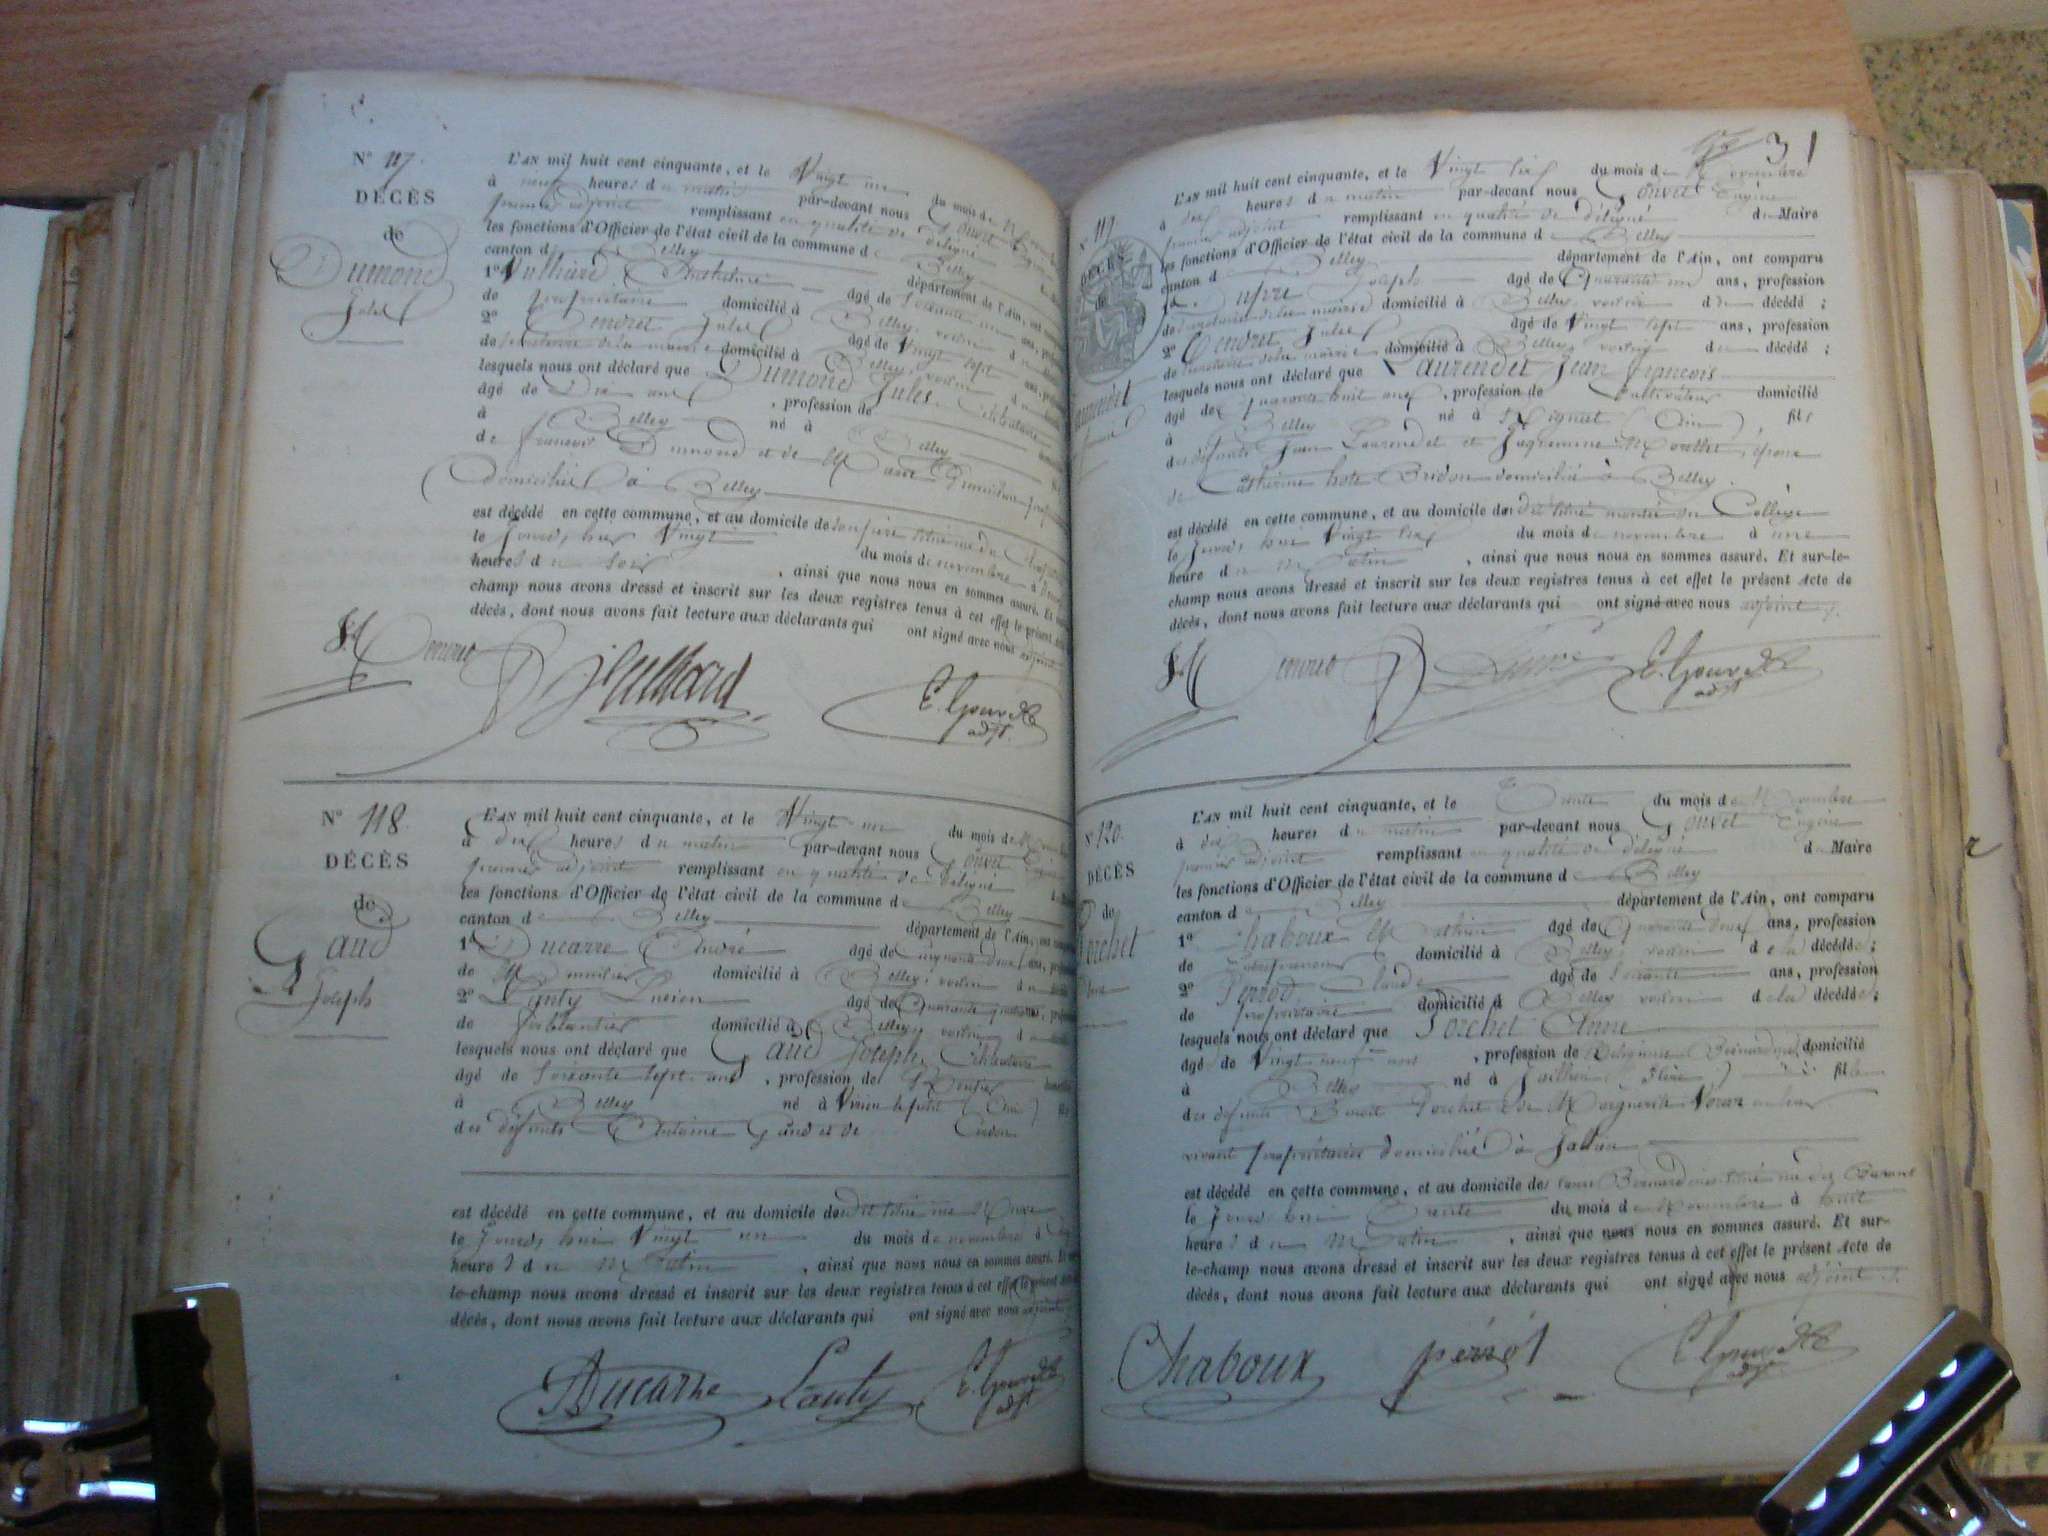 N° 117.
DÉCÈS
de
Dumond
Jules
L'AN mil huit cent cinquante, et le Vingt un du mois de
à neuf heures du matin par-devant nous Gouvet
premier adjoint remplissant en qualité de délégué
les fonctions d'Officier de l'état civil de la commune de Belley
canton de Belley département de l'Ain, ont
1° Anthelme âgé de Soixante un ans,
de propriétaire domicilié à Belley, voisin
2° Jules âgé de Vingt sept ans,
de secrétaire de la mairie domicilié à Belley, voisin
lesquels nous ont déclaré que Dumond Jules, Célibataire
âgé de Dix ans, profession de
à Belley né à Belley
de françois Dumond et de
domiciliés à Belley
est décédé en cette commune, et au domicile de son père
le Jourd'hui Vingt du mois de novembre à
heures du soir, ainsi que nous nous en sommes assuré. Et
champ nous avons dressé et inscrit sur les deux registres tenus à cet effet le présent
décès, dont nous avons fait lecture aux déclarants qui ont signé avec nous adjoint
E. Gouvet
adjt.
N° 118.
DÉCÈS
de
Gaud
Joseph
L'AN mil huit cent cinquante, et le Vingt un du mois de
à dix heures du matin par-devant nous Gouvet
premier adjoint remplissant en qualité de délégué
les fonctions d'Officier de l'état civil de la commune de Belley
canton de Belley département de l'Ain, ont
1° Ducarre André âgé de Cinquante deux ans,
de domicilié à Belley, voisin
2° Lanty Lucien âgé de Quarante quatre
de ferblantier domicilié à Belley, voisin
lesquels nous ont déclaré que Gaud Joseph, Célibataire
âgé de Soixante sept ans, profession de Rentier
à Belley né à Virieu le petit (Ain)
des défunts Antoine Gaud et de
est décédé en cette commune, et au domicile
le Jourd'hui Vingt un du mois de novembre à
heures du Matin, ainsi que nous nous en sommes assuré. Et
le-champ nous avons dressé et inscrit sur les deux registres tenus à cet effet le présent
décès, dont nous avons fait lecture aux déclarants qui ont signé avec nous adjoint
Ducarre Lanty E. Gouvet
adjt
31
119
DÉCÈS
de
L'AN mil huit cent cinquante, et le Vingt six du mois de Novembre
à dix heures du matin par-devant nous Gouvet Eugène
premier adjoint remplissant en qualité de délégué du Maire
les fonctions d'Officier de l'état civil de la commune de Belley
canton de Belley département de l'Ain, ont comparu
1° Joseph âgé de Quarante un ans, profession
de secrétaire de la mairie domicilié à Belley, voisin du décédé;
2° Jules âgé de Vingt sept ans, profession
de secrétaire de la mairie domicilié à Belley, voisin du décédé;
lesquels nous ont déclaré que Laurendet Jean françois
âgé de quarante huit ans, profession de Cultivateur domicilié
à Belley né à (Ain), fils
des défunts Jean Laurendet et Jaquemine époux
de Catherine domicilié à Belley.
est décédé en cette commune, et au domicile du Collège
le Jourd'hui Vingt six du mois de novembre à une
heure du Matin, ainsi que nous nous en sommes assuré. Et sur-le-
champ nous avons dressé et inscrit sur les deux registres tenus à cet effet le présent Acte de
décès, dont nous avons fait lecture aux déclarants qui ont signé avec nous adjoint
E. Gouvet
adjt
N° 120.
DÉCÈS
de
L'AN mil huit cent cinquante, et le Trente du mois de Novembre
à dix heures du matin par-devant nous Gouvet Eugène
premier adjoint remplissant en qualité de délégué du Maire
les fonctions d'Officier de l'état civil de la commune de Belley
canton de Belley département de l'Ain, ont comparu
1° Chaboux Mathieu âgé de Quarante deux ans, profession
de domicilié à Belley, voisin de la décédée;
2° Perrot Claude âgé de Soixante ans, profession
de propriétaire domicilié à Belley voisin de la décédée;
lesquels nous ont déclaré que Porchet Anne
âgé de Vingt neuf ans, profession de Religieuse domicilié
à Belley né à (Isère) fille
des défunts Benoit Porchet et de Marguerite
vivant propriétaires domiciliés à
est décédé en cette commune, et au domicile des
le Jourd'hui Trente du mois de Novembre à huit
heures du Matin, ainsi que nous nous en sommes assuré. Et sur-
le-champ nous avons dressé et inscrit sur les deux registres tenus à cet effet le présent Acte de
décès, dont nous avons fait lecture aux déclarants qui ont signé avec nous adjoint
Chaboux perrot E. Gouvet
adjt